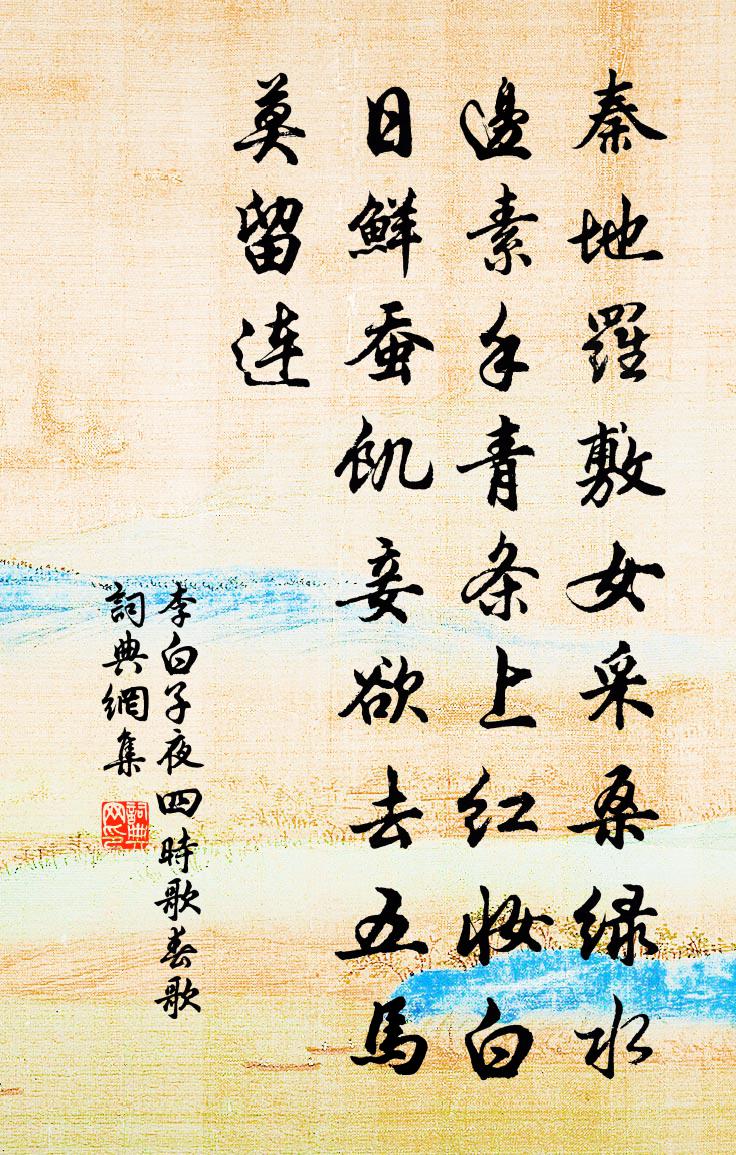 秦地羅敷女采桑绿水
邊素手青条上红妆白
日鲜蚕飢妾欲去五馬
莫留连
李白子夜四時歌春歌
詞典網集
詞典网印